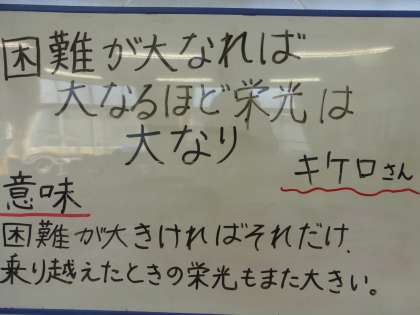 困難が大なれば
大なるほど栄光は
大なり
キケロさん
意味
困難が大きければそれだけ、
乗り越えたときの栄光もまた大きい。